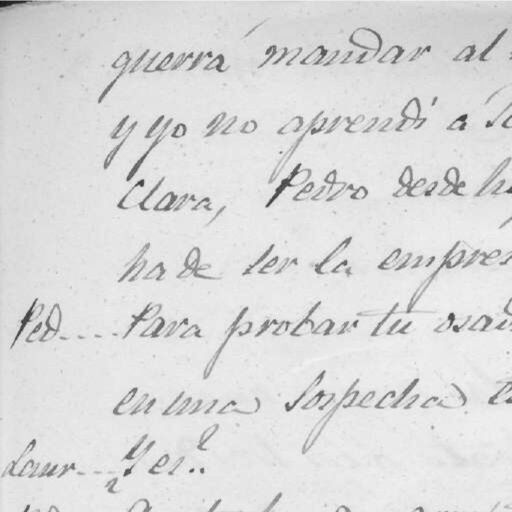 querrá mandar al
y yo no aprendí a
Clara, Pedro desde
ha de ser la empre
Ped.... Para probar tu osad
en una sospecha
Laur... ¿Y es?